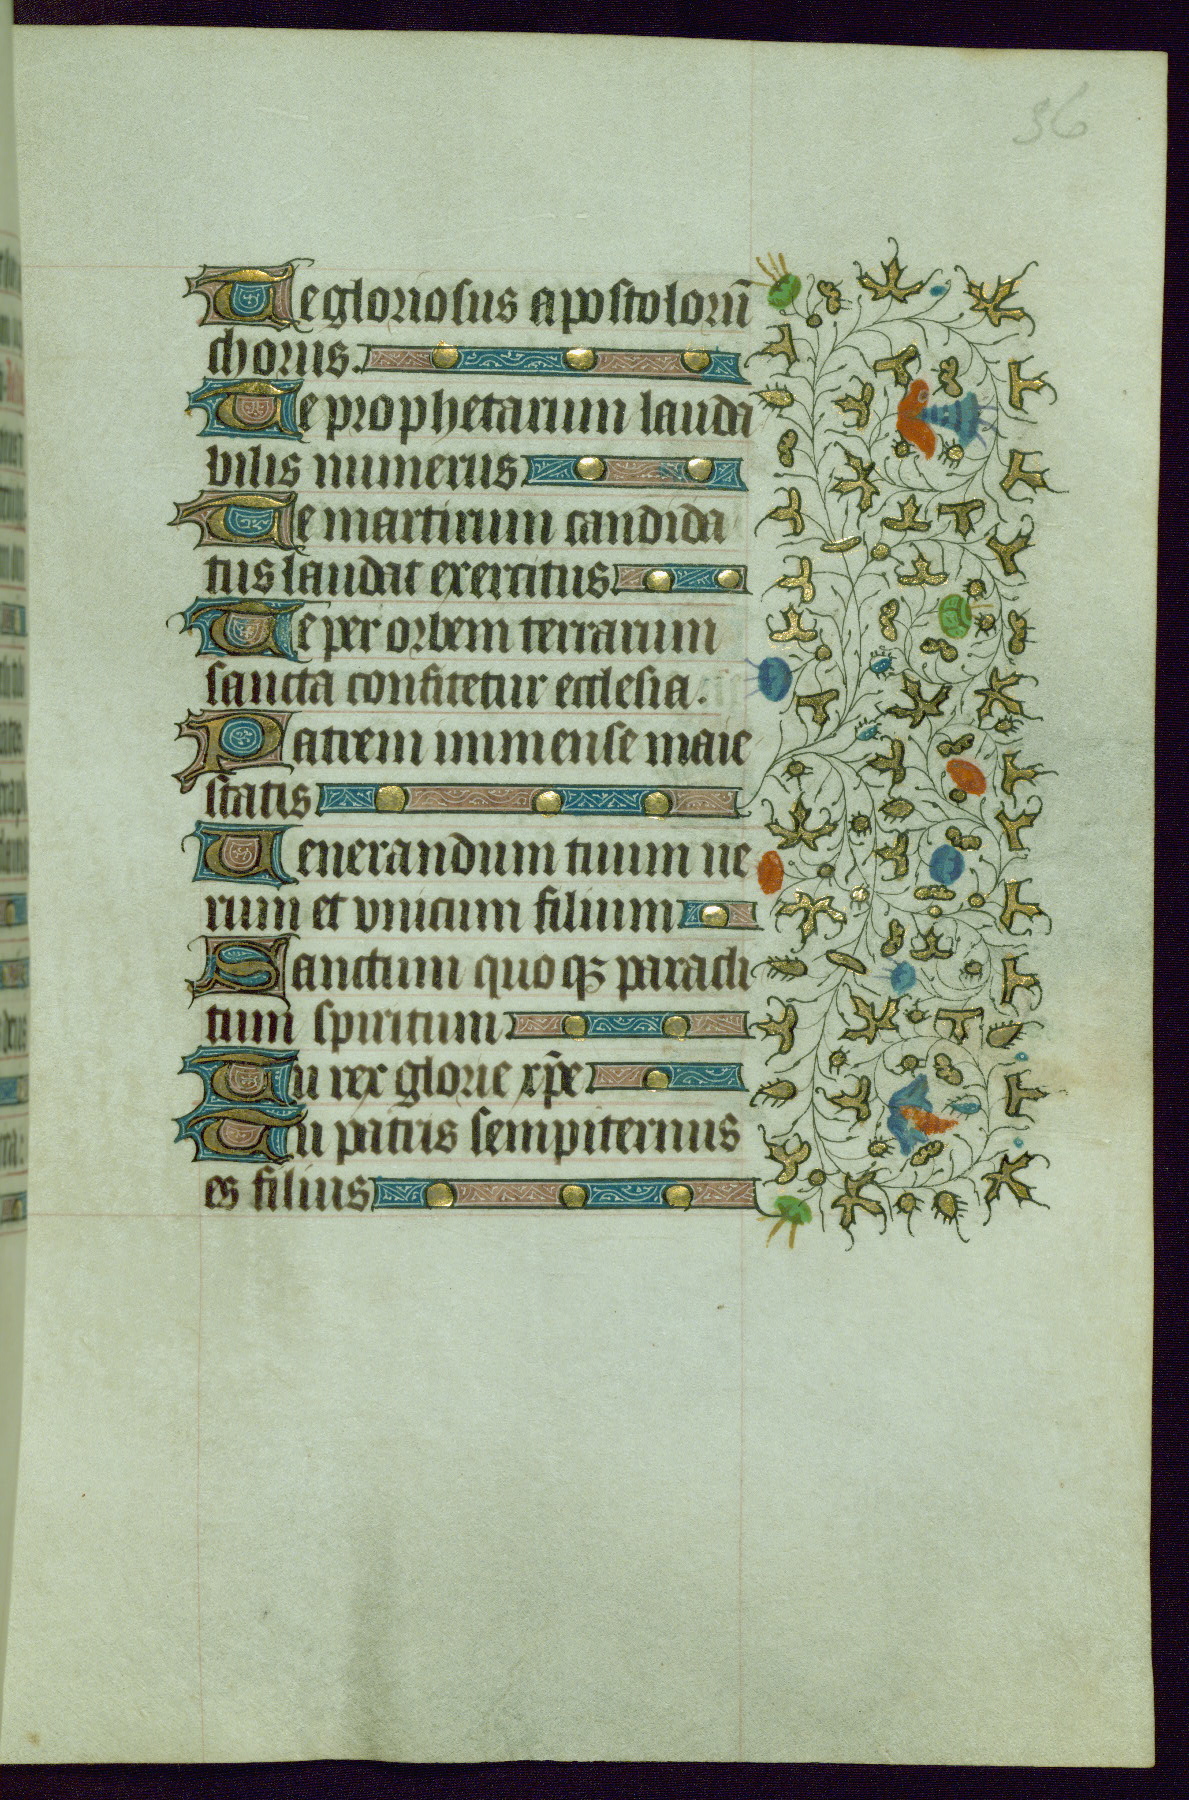 36
Te gloriosus apostolorū
chorus.
Te prophetarum lauda
bilis numerus
Te martirum candida
tus laudat exercitus
Te per orbem terrarum
sancta confitetur ecclesia.
Patrem immense maie
statis
Uenerandum tuum ue
rum et vnicum filium
Sanctum quoqꝫ paracli
tum spiritum
Tu rex glorie xp̄e
Tu patris sempiternus
es filius